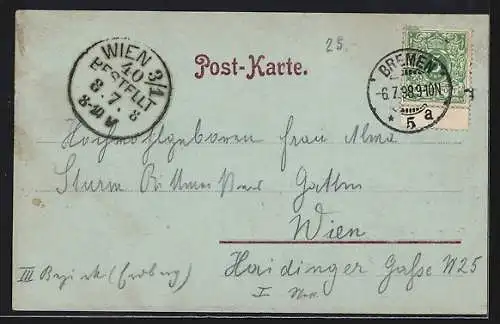 25.
WIEN 3/1
40
BESTELLT
8.7.8
8-10 M
Post-Karte.
BREMEN
6.7.98.9-10N
5 a
Hochwohlgeboren Frau Alma
Sturm Gattin
Wien
III Bezirk (Erdberg)
Haidinger Gasse No 25
I